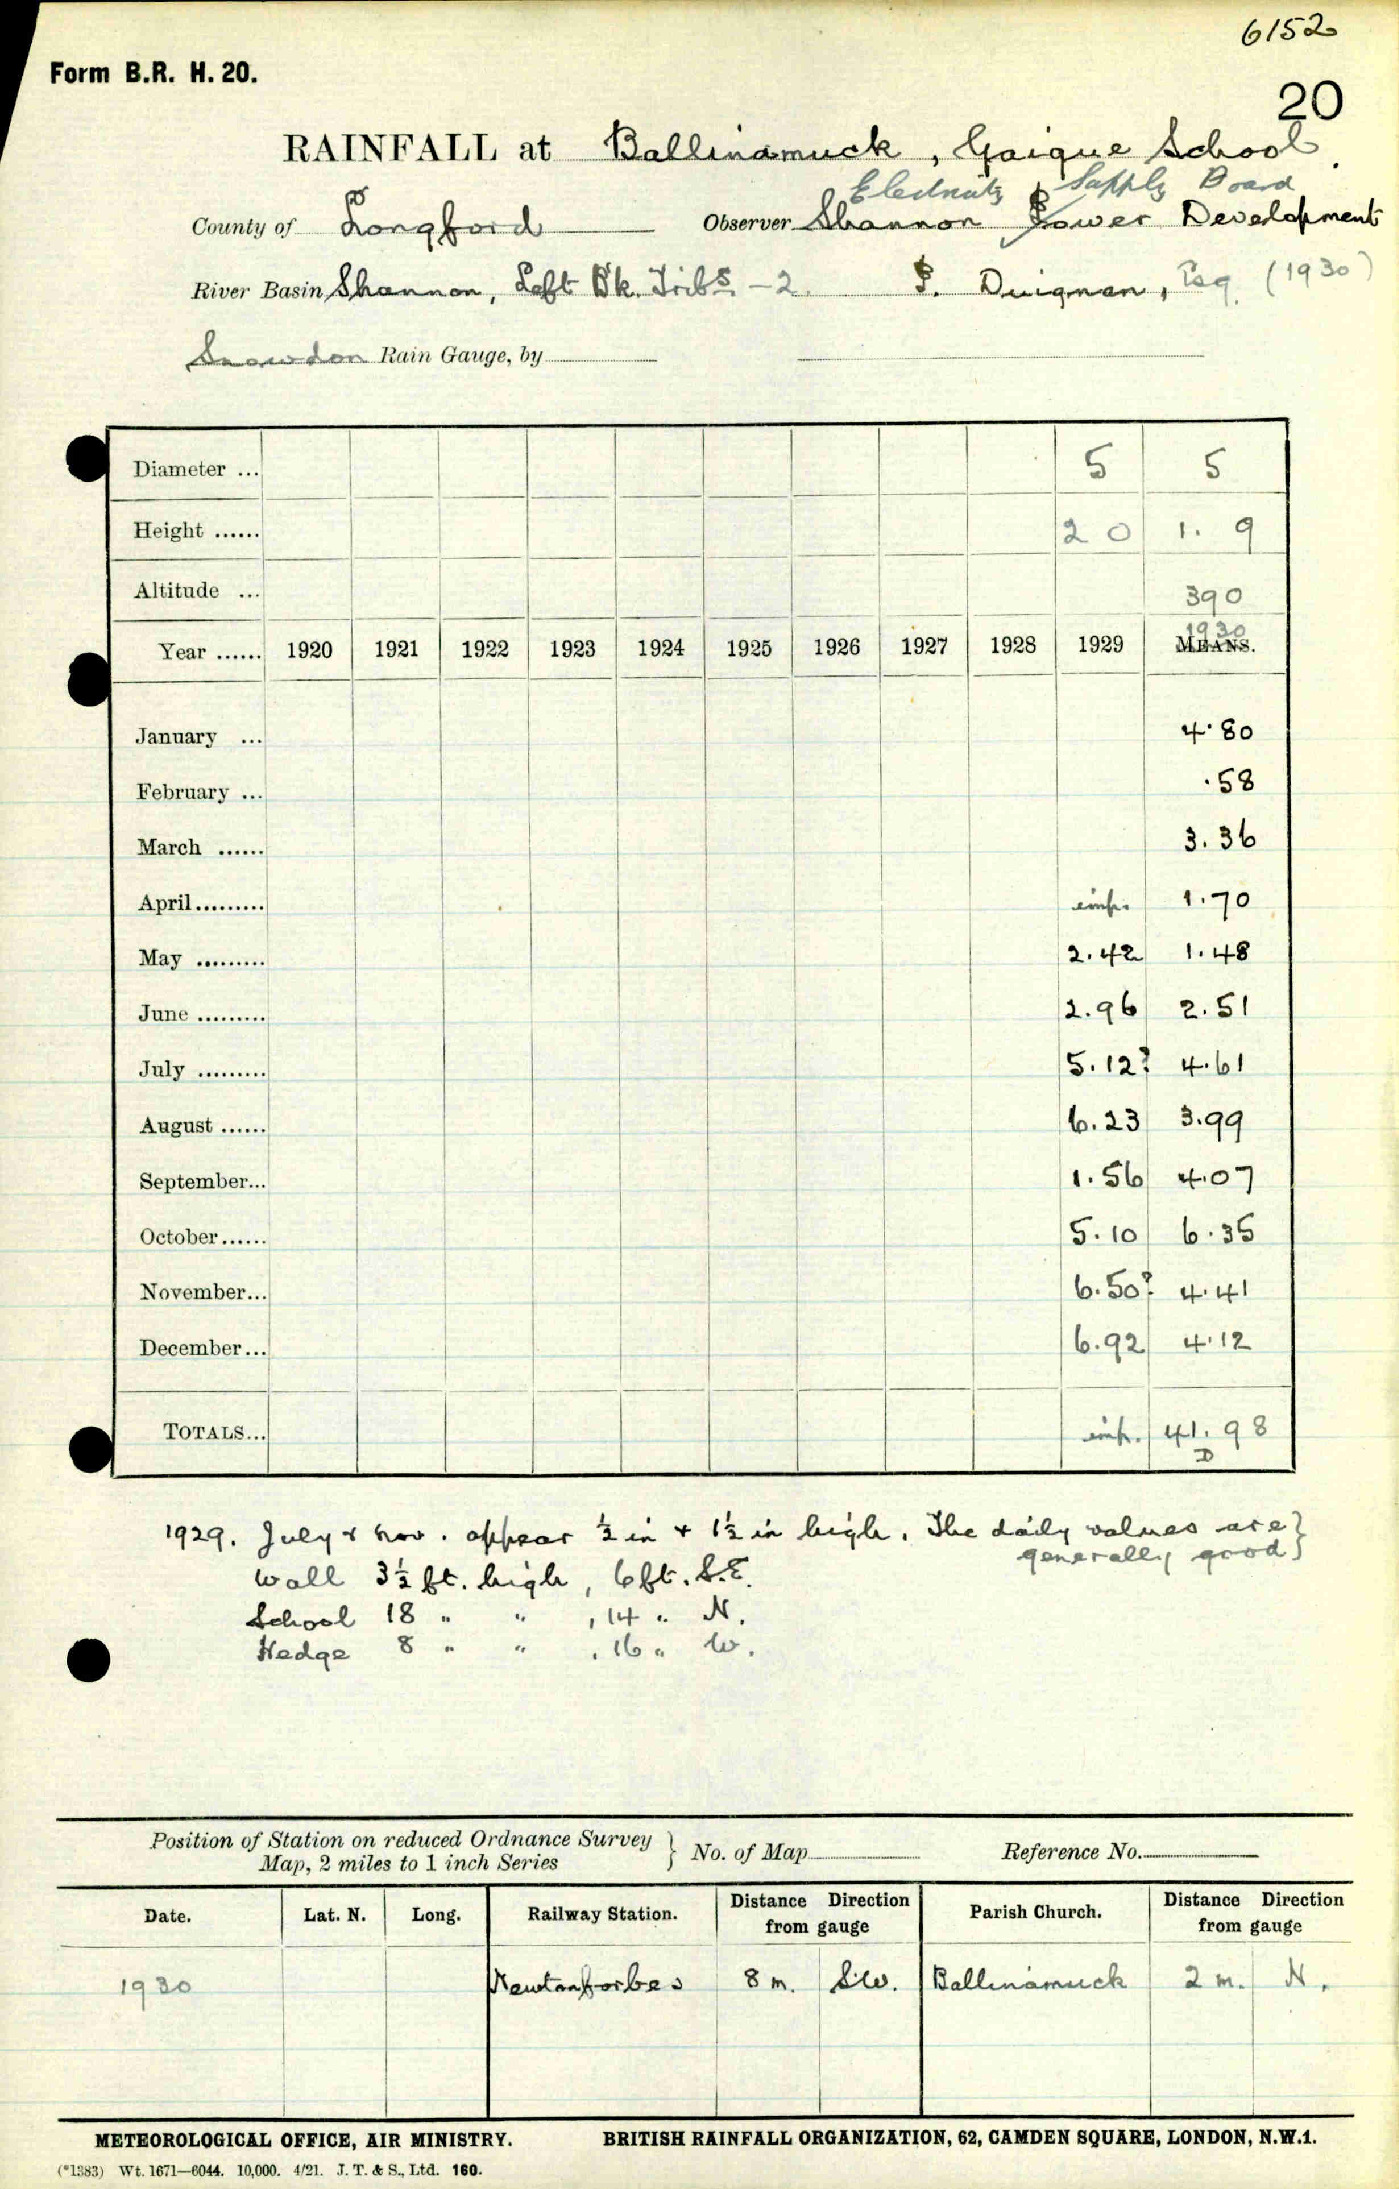 6152
Form B.R. H. 20.
20
RAINFALL at Ballinamuck, Gaigue School.
Electricity Supply Board
County of Longford Observer Shannon Power Development
River Basin Shannon, Left Bk. Tribs. – 2. P. Duignan, Esq. (1930)
Snowdon Rain Gauge, by
Diameter ... 5 5
Height ...... 2 0 1. 9
Altitude ... 390
1930
Year ...... 1920 1921 1922 1923 1924 1925 1926 1927 1928 1929 MEANS.
January ... 4.80
February ... .58
March ...... 3.36
April......... imp. 1.70
May ......... 2.42 1.48
June ......... 2.96 2.51
July ......... 5.12? 4.61
August ...... 6.23 3.99
September... 1.56 4.07
October...... 5.10 6.35
November... 6.50? 4.41
December... 6.92 4.12
TOTALS... imp. 41.98
D
1929. July & Nov. appear ½ in & 1½ in high. The daily values are }
generally good }
Wall 3½ ft. high, 6 ft. S.E.
School 18 " " , 14 " N.
Hedge 8 " " , 16 " W.
Position of Station on reduced Ordnance Survey } No. of Map Reference No.
Map, 2 miles to 1 inch Series
Date. Lat. N. Long. Railway Station. Distance Direction from gauge Parish Church. Distance Direction from gauge
1930 Newtonforbes 8 m. S.W. Ballinamuck 2 m. N.
METEOROLOGICAL OFFICE, AIR MINISTRY. BRITISH RAINFALL ORGANIZATION, 62, CAMDEN SQUARE, LONDON, N.W.1.
(*1383) Wt. 1671—6044. 10,000. 4/21. J. T. & S., Ltd. 160.